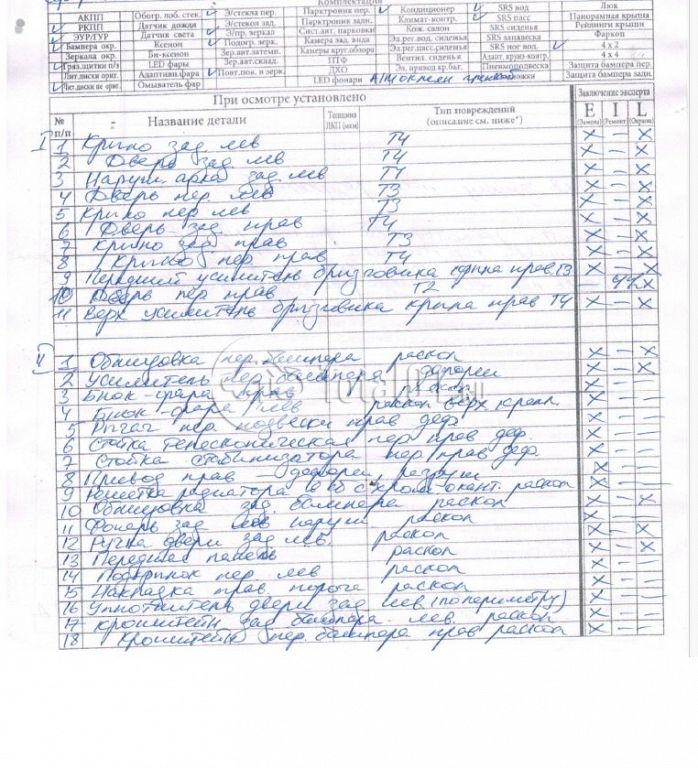 Комплектация
АКПП Обогр. лоб. стек. Э/стекла пер. Парктроник пер. Кондиционер SRS вод Люк
РКПП Датчик дождя Э/стекол зад. Парктроник задн. Климат-контр. SRS пасс Панорамная крыша
ЭУР/ГУР Датчик света Э/пр. зеркал Сист.авт. парковки Кож. салон SRS сиденья Рейлинги крыши
Бампера окр. Ксенон Подогр. зерк. Камера зад. вида Эл.рег.вод. сиденья SRS занавеска Фаркоп
Зеркала окр. Би-ксенон Зер.авт.затемн. Камеры круг.обзора Эл.рег.пасс.сиденья SRS ног вод. 4 х 2
Гряз.щитки п/з LED фары Зер.авт.склад. ПТФ Вентил. сиденья Адапт. круиз-контр. 4 х 4
Лит.диски ориг. Адаптивн.фары Повт.пов. в зерк. ДХО Эл. привод кр.баг. Пневмоподвеска Защита бампера пер.
Лит.диски не ориг. Омыватель фар LED фонари Защита бампера задн.
При осмотре установлено Заключение эксперта
№ п/п Название детали Толщина ЛКП (мкм) Тип повреждений (описание см. ниже*) E (Замена) I (Ремонт) L (Окраска)
I 1 Крыло зад лев Т4 х – х
2 Дверь зад лев Т4 х – х
3 Наружн. арка зад лев Т4 х – х
4 Дверь пер лев Т3 х – х
5 Крыло пер лев Т3 х – х
6 Дверь зад прав Т4 х – х
7 Крыло зад прав Т3 х – х
8 Крыло пер прав Т4 х – х
9 Передний усилитель брызговика крыла прав Т3 х – х
10 Дверь пер прав Т2 – х
11 Верх усилитель брызговика крыла прав Т4 х – х
II 1 Облицовка пер. бампера раскол х – х
2 Усилитель пер бампера деформ х – х
3 Блок-фара прав раскол х – –
4 Блок фара лев раскол верх крепл. х – –
5 Рычаг пер подвески прав деф. х – –
6 Стойка телескопическая пер прав деф. х – –
7 Стойка стабилизатора пер прав деф. х – –
8 Привод прав деформ, разруш х – –
9 Решетка радиатора в сб с хром. окант. раскол х – –
10 Облицовка зад бампера раскол х – х
11 Фонарь зад лев наружн раскол х – –
12 Ручка двери зад лев. раскол х – х
13 Передняя панель раскол х – х
14 Подкрылок пер лев раскол х – –
15 Накладка прав порога раскол х – –
16 Уплотнитель двери зад лев (по периметру) х – –
17 Кронштейн зад бампера лев раскол х – –
18 Кронштейн пер. бампера прав раскол х – –